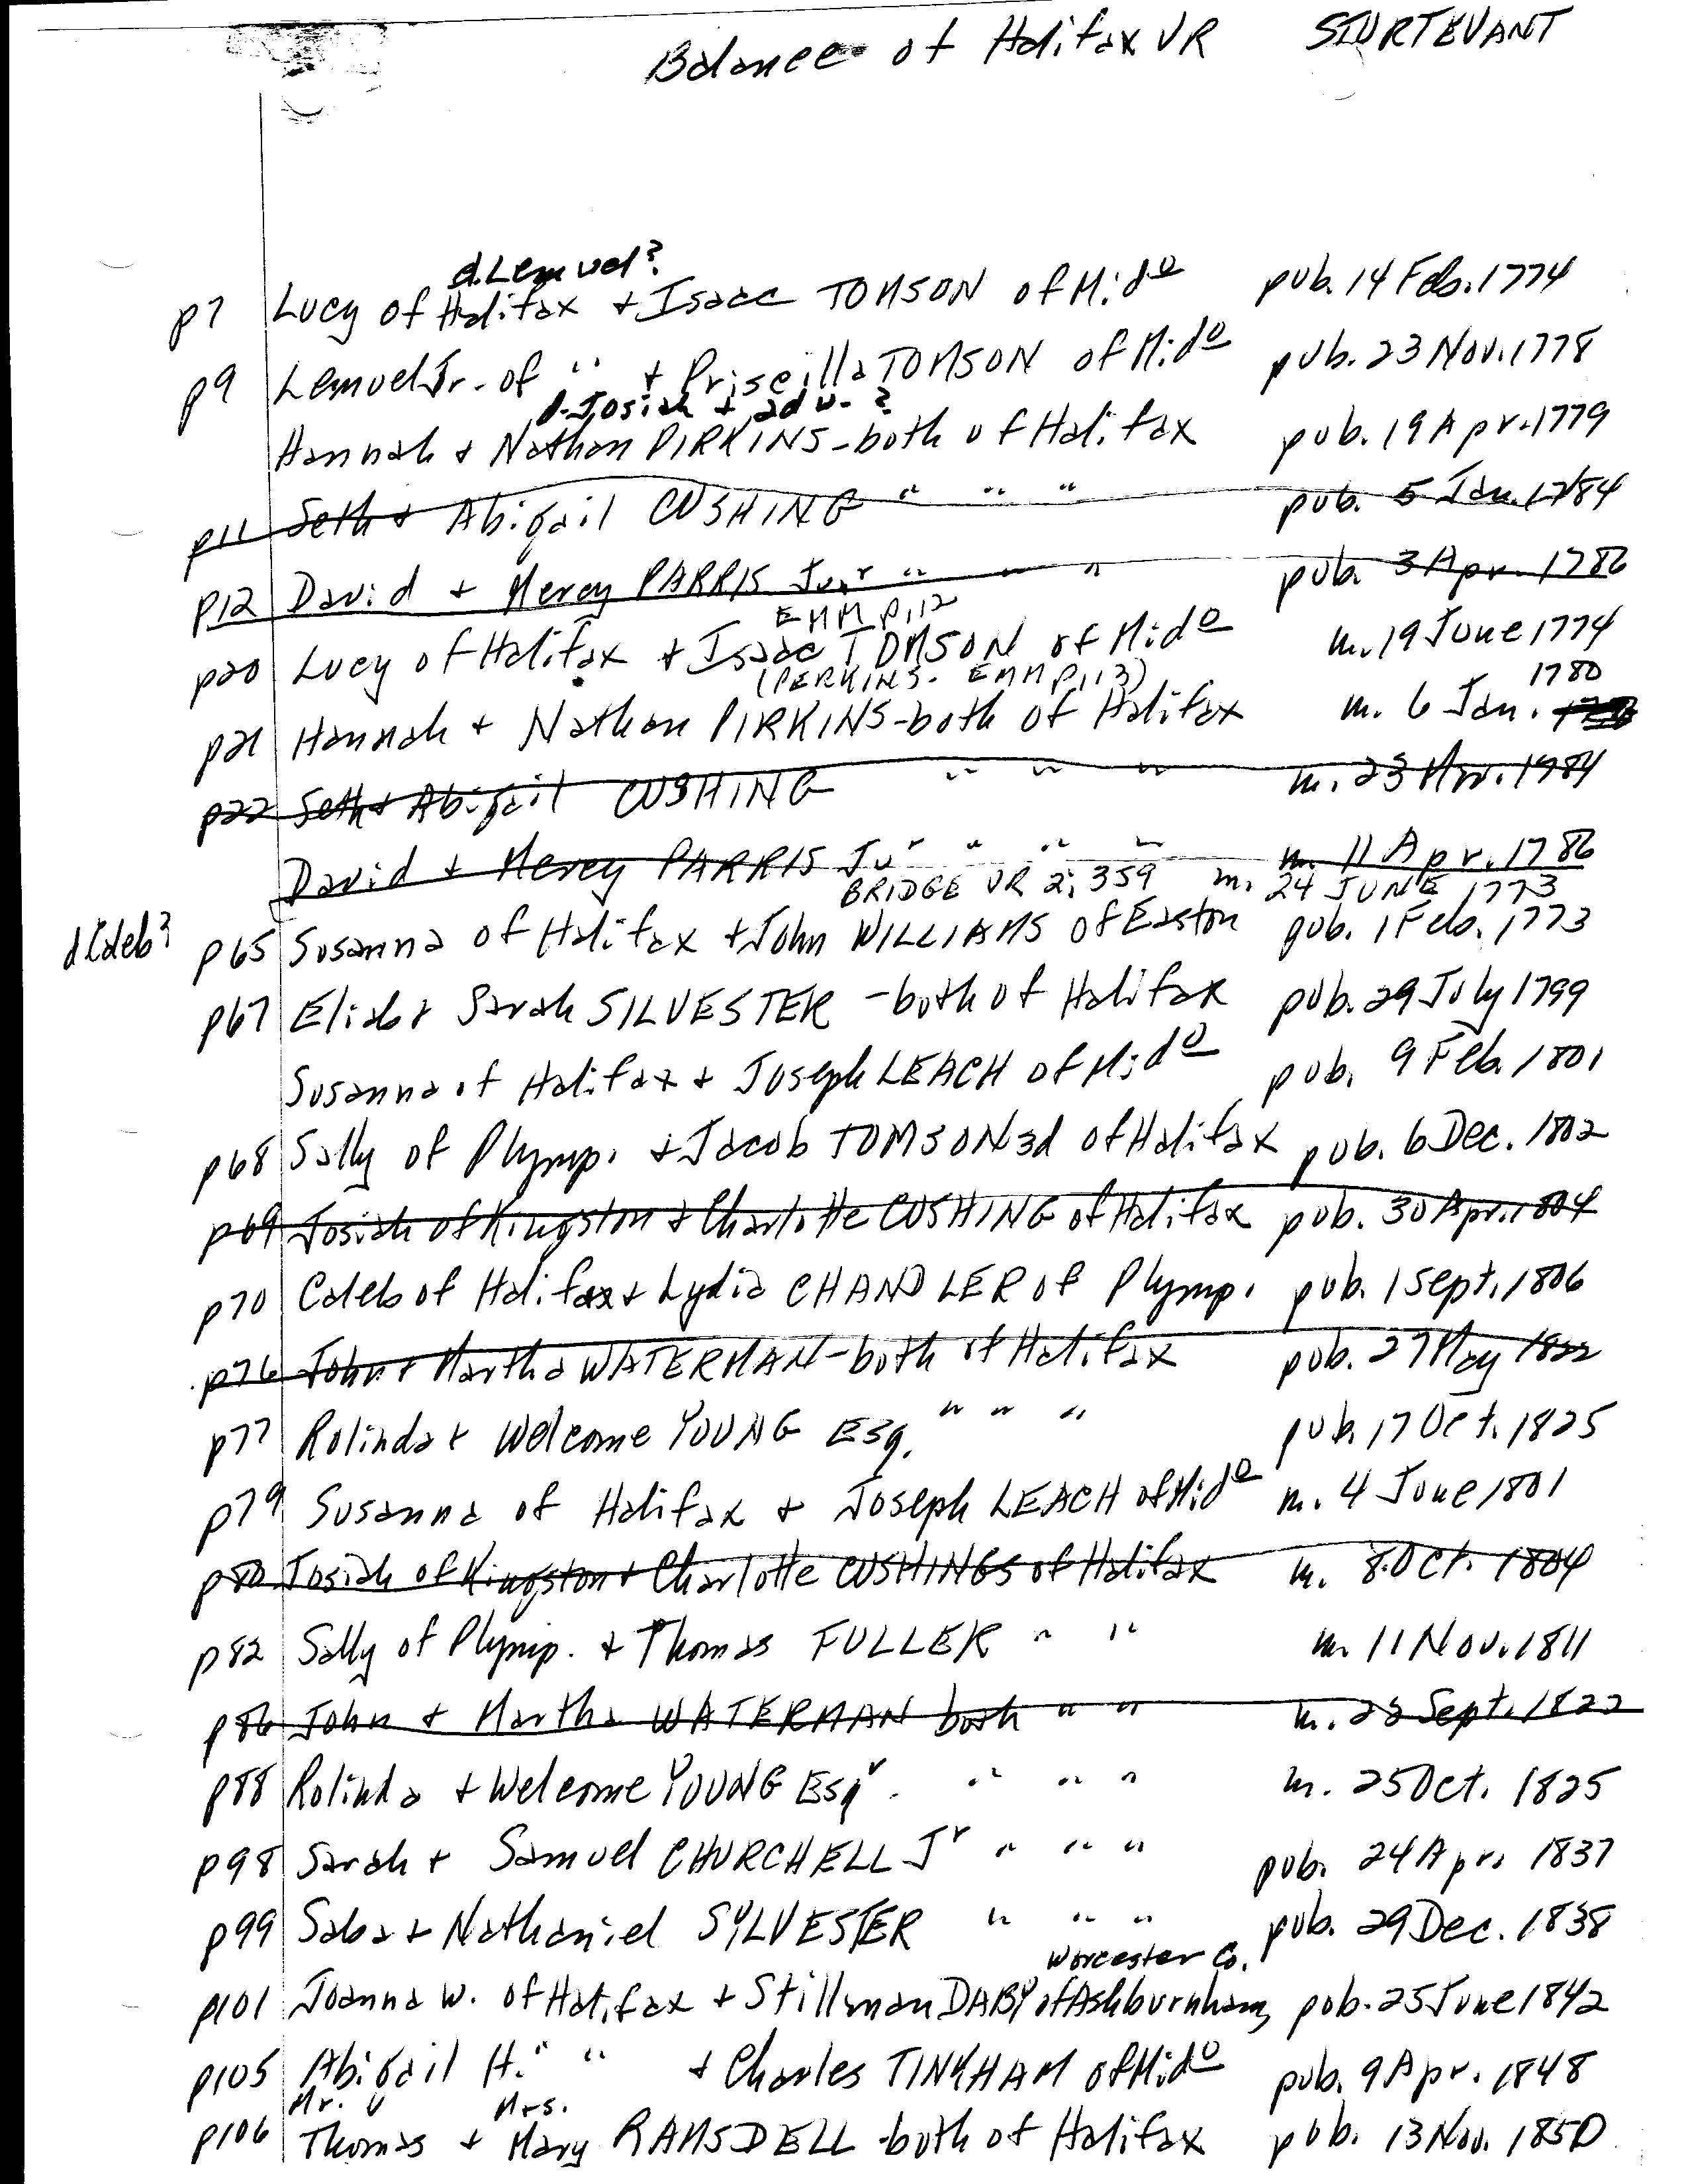 Balance of Halifax VR STURTEVANT
d. Lemuel?
p7 Lucy of Halifax + Isaac TOMSON of Mido pub. 14 Feb. 1774
p9 Lemuel Jr. of " + Priscilla TOMSON of Mido pub. 23 Nov. 1778
d. Josiah + 2d w. ?
Hannah + Nathan PIRKINS - both of Halifax pub. 19 Apr. 1779
p11 Seth + Abigail CUSHING " " " pub. 5 Jan. 1784
p12 David + Mercy PARRIS Junr " " " pub. 3 Apr. 1786
EMM p112
p20 Lucy of Halifax + Isaac TOMSON of Mido m. 19 June 1774
(PERKINS. EMM p113) 1780
p21 Hannah + Nathan PIRKINS - both of Halifax m. 6 Jan.
p22 Seth + Abigail CUSHING " " " m. 23 Mar. 1984
David + Mercy PARRIS Jur " " " m. 11 Apr. 1786
BRIDGE VR 2; 359 m. 24 JUNE 1773
d Caleb? p65 Susanna of Halifax + John WILLIAMS of Easton pub. 1 Feb. 1773
p67 Eliab + Sarah SILVESTER - both of Halifax pub. 29 July 1799
Susanna of Halifax + Joseph LEACH of Mido pub. 9 Feb. 1801
p68 Sally of Plymp. + Jacob TOMSON 3d of Halifax pub. 6 Dec. 1802
p69 Josiah of Kingston + Charlotte CUSHING of Halifax pub. 30 Apr. 1804
p70 Caleb of Halifax + Lydia CHANDLER of Plymp. pub. 1 Sept. 1806
p76 John + Martha WATERMAN - both of Halifax pub. 27 May 1822
p77 Rolinda + Welcome YOUNG Esq. " " " pub. 17 Oct. 1825
p79 Susanna of Halifax + Joseph LEACH of Mido m. 4 June 1801
p80 Josiah of Kingston + Charlotte CUSHINGS of Halifax m. 8 Oct. 1804
p82 Sally of Plymp. + Thomas FULLER " " m. 11 Nov. 1811
p86 John + Martha WATERMAN both " " m. 28 Sept. 1822
p88 Rolinda + Welcome YOUNG Esqr. " " " m. 25 Oct. 1825
p98 Sarah + Samuel CHURCHELL Jr " " " pub. 24 Apr. 1837
p99 Saba + Nathaniel SYLVESTER " " " pub. 29 Dec. 1838
Worcester Co.
p101 Joanna W. of Halifax + Stillman DABY of Ashburnham, pub. 25 June 1842
p105 Abigail H. " " + Charles TINKHAM of Mido pub. 9 Apr. 1848
Mr. Mrs.
p106 Thomas + Mary RAMSDELL - both of Halifax pub. 13 Nov. 1850